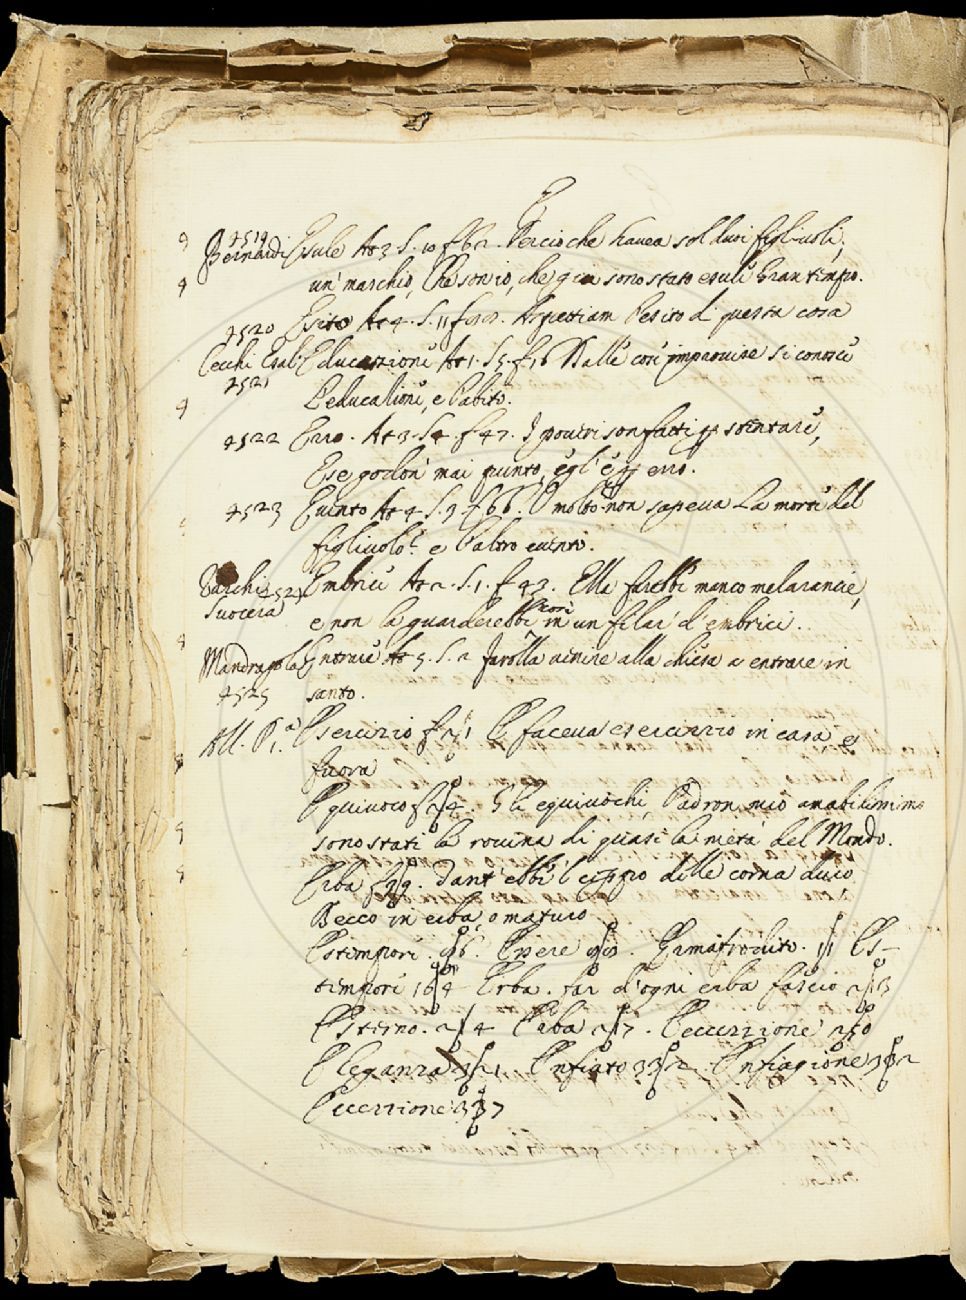 E
4519
Bernardi Esule At 3 S. 10 f 62. Percioche havea sol duoi figliuoli,
un' maschio, che son io, che gia sono stato esule gran tempo.
Esito At 4. S. 11 f Aspettiam l'esito di questa cosa
4520
Cecchi Educazione At 1. S 5. f 16 Dalle cose improvise si conosce
4521 l'educatione, e l'abito.
4522 Erro. At 3. S 4 f 47. I poveri son fatti p stentare,
E se godon mai punto, egl' è p erro.
4523 Evento At 4. S. 9. f 66. O molto non sapeva La morte del
figliuolo? e l'altro evento.
Varchi 4524 Embrici At 2. S. 1. f 43. Ella farebbe manco melarancie,
Suocera e non la guarderebbe in un filar d'embrici.
Mandragola Entrare At 5. S. 2 farolla venire alla chiesa e entrare in
4525 santo.
All. P. 1.a Esercizio f 21 E faceva esercizio in casa e
fuora
Equivoco f 24. Gli equivochi, Padron mio amabilissimo
sono stati la rovina di quasi la metà del Mondo.
Erba f 29. dant' ebbe l ceppo delle corna duro
Becco in erba, o maturo
Estempore. 96. Essere Ermafrodito. 11 Es-
tempore 164 Erba. far d'ogni erba fascio 213
Esterno. 214 Erba 217. Eccezzione 250
Eleganza 321 Enfiato 332. Enfiagione 332
Eccezzione 337